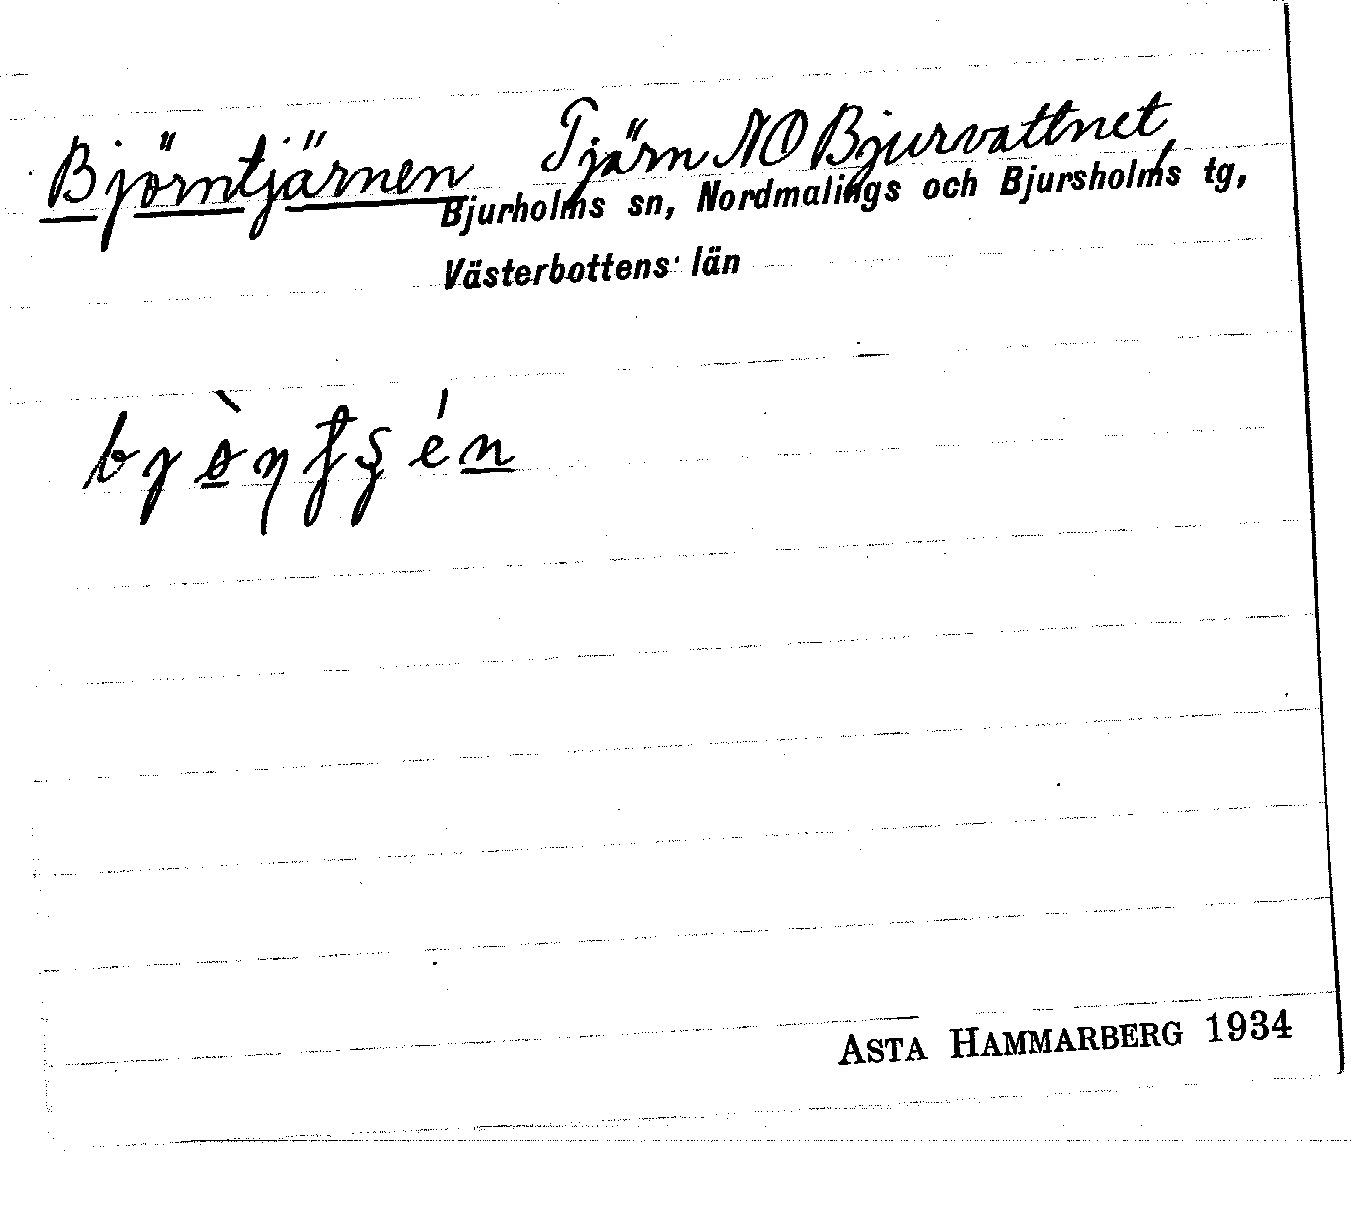 Björntjärnen Tjärn NO Bjurvattnet,
Bjurholms sn, Nordmalings och Bjursholms tg,
Västerbottens län
ASTA HAMMARBERG 1934